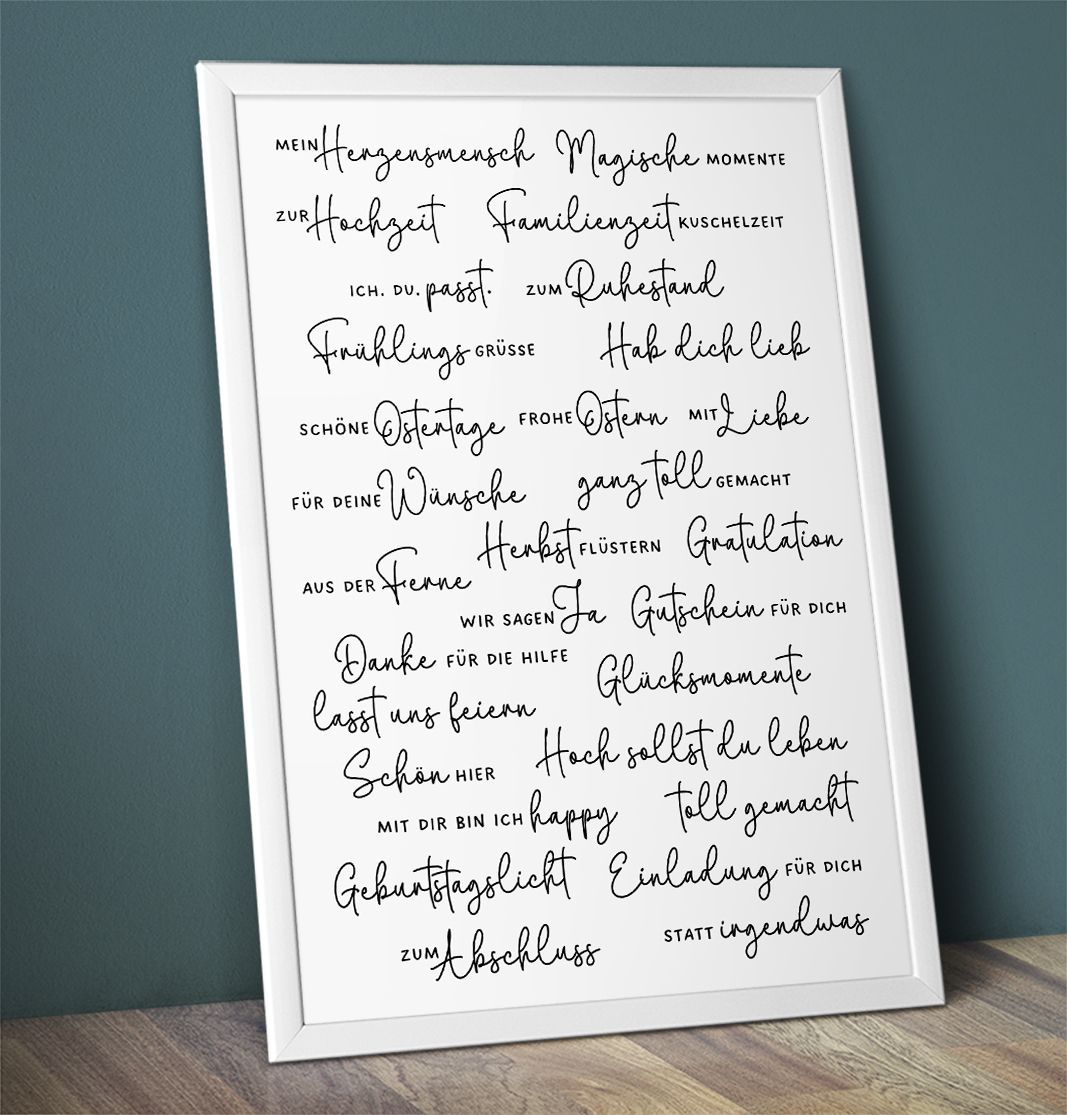 MEIN Herzensmensch Magische MOMENTE
ZUR Hochzeit Familienzeit KUSCHELZEIT
ICH. DU. passt. ZUM Ruhestand
Frühlings GRÜSSE Hab dich lieb
SCHÖNE Ostertage FROHE Ostern MIT Liebe
FÜR DEINE Wünsche ganz toll GEMACHT
AUS DER Ferne Herbst FLÜSTERN Gratulation
WIR SAGEN Ja Gutschein FÜR DICH
Danke FÜR DIE HILFE Glücksmomente
lasst uns feiern
Schön HIER Hoch sollst du leben
MIT DIR BIN ICH happy toll gemacht
Geburtstagslicht Einladung FÜR DICH
ZUM Abschluss STATT irgendwas